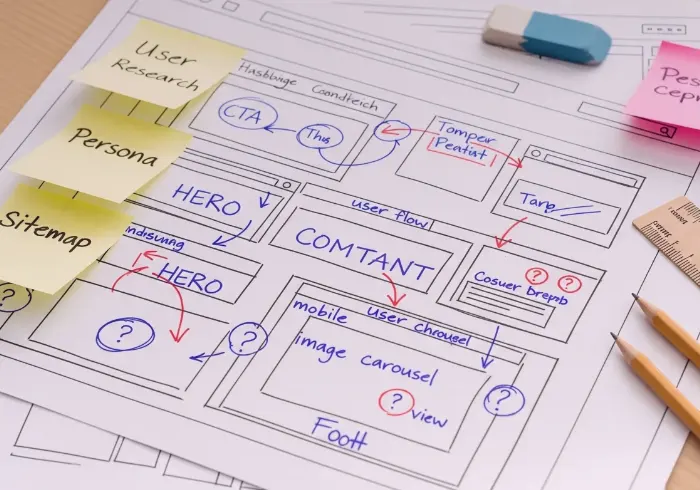 User
Research
Persona
Sitemap
Pes
cep
Hasbluge Coandteich
CTA
This
Tomper
Peatist
Tarb
HERO
user flow
COMTANT
HERO
Cosuer Brepnb
? ?
mobile
User chrousel
image carousel
?
?
?
?
? view
Foott